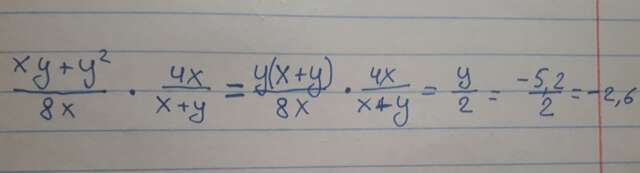 (xy+y²)/(8x) · (4x)/(x+y) = (y(x+y))/(8x) · (4x)/(x+y) = y/2 = (-5,2)/2 = -2,6